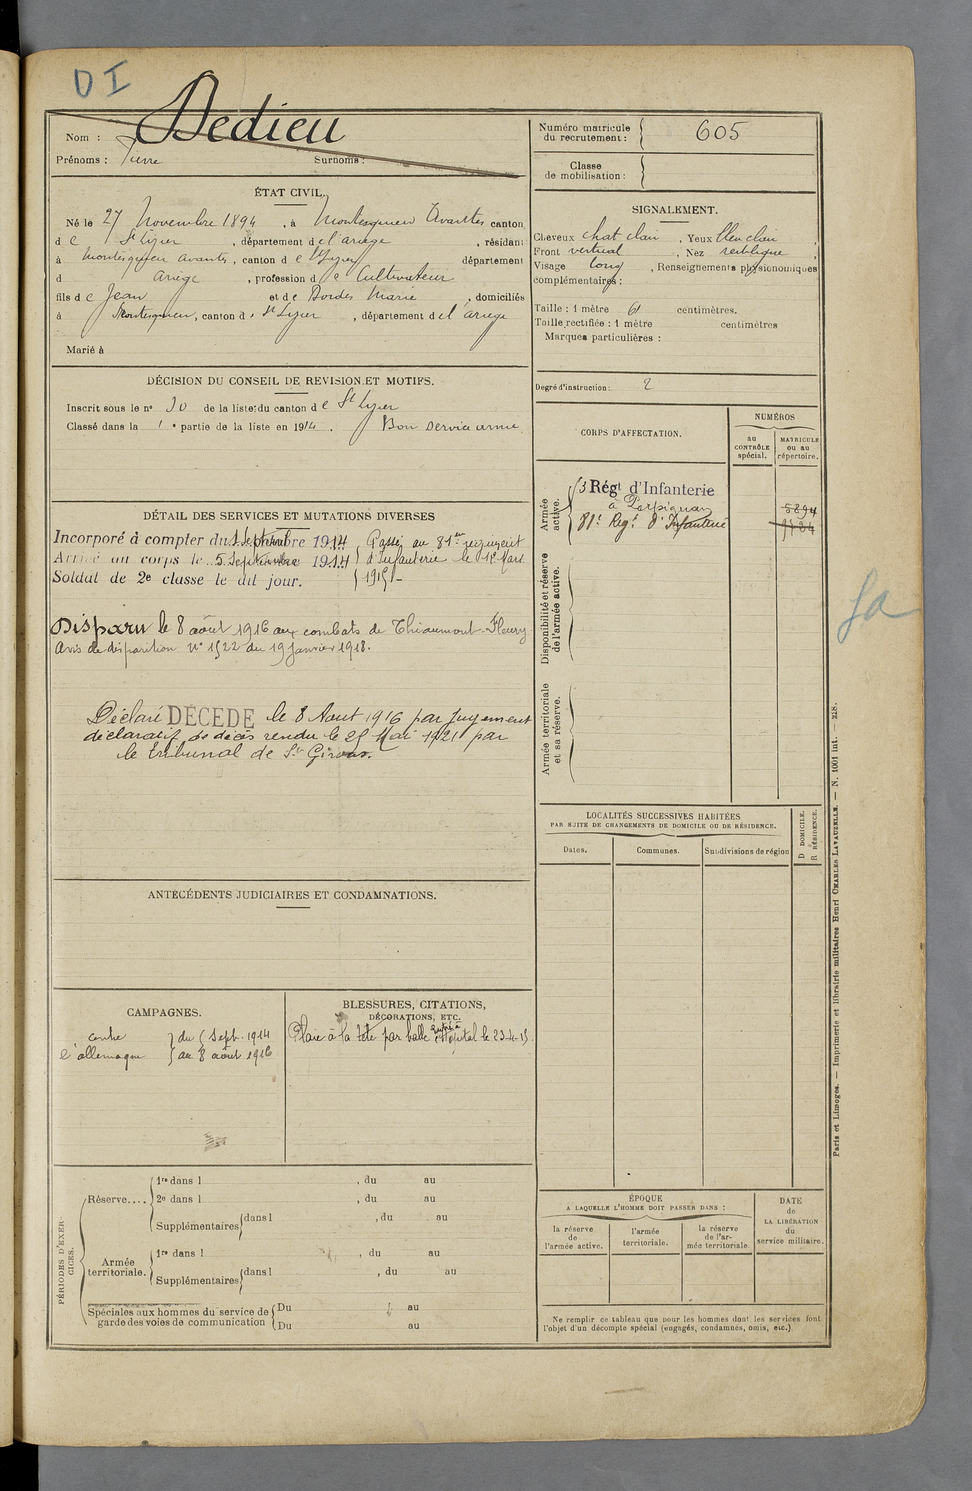 DI
Nom : Dedieu
Prénoms : Pierre Surnoms :
Numéro matricule du recrutement : 605
Classe de mobilisation :
ÉTAT CIVIL.
Né le 27 Novembre 1894, à Montesquieu Avantès canton
de St Lizier, département de l'ariège, résidant
à Montesquieu avantès, canton de St Lizier département
d Ariège, profession de Cultivateur
fils de Jean et de Bordes Marie, domiciliés
à Montesquieu, canton de St Lizier, département de l'ariège
Marié à
SIGNALEMENT.
Cheveux chat clair, Yeux bleu clair,
Front vertical, Nez rectiligne,
Visage long, Renseignements physionomiques
complémentaires :
Taille : 1 mètre 61 centimètres.
Taille rectifiée : 1 mètre centimètres
Marques particulières :
Degré d'instruction : 2
DÉCISION DU CONSEIL DE REVISION ET MOTIFS.
Inscrit sous le n° 30 de la liste du canton de St Lizier
Classé dans la 1e partie de la liste en 1914. Bon service armé
DÉTAIL DES SERVICES ET MUTATIONS DIVERSES
Incorporé à compter du 1 Septembre 1914
Arrivé au corps le 5 Septembre 1914
Soldat de 2e classe le dit jour.
Passé au 81e régiment
d'Infanterie le 12 Mars
1915
Disparu le 8 août 1916 aux combats de Thiaumont-Fleury
Avis de disparition N° 1522 du 19 janvier 1918.
Déclaré DÉCÉDÉ le 8 Aout 1916 par Jugement
déclaratif de décès rendu le 25 Mai 1921 par
le tribunal de St Girons.
CORPS D'AFFECTATION.
NUMÉROS
au CONTRÔLE spécial.
MATRICULE ou au répertoire.
Armée active.
Régt d'Infanterie
à Perpignan
81e Regt d'Infanterie
5894
Disponibilité et réserve de l'armée active.
Armée territoriale et sa réserve.
Ja
LOCALITÉS SUCCESSIVES HABITÉES
PAR SUITE DE CHANGEMENTS DE DOMICILE OU DE RÉSIDENCE.
Dates.
Communes.
Subdivisions de région
D DOMICILE.
R RÉSIDENCE.
ANTÉCÉDENTS JUDICIAIRES ET CONDAMNATIONS.
CAMPAGNES.
contre du 5 Sept. 1914
l'allemagne au 8 août 1916
BLESSURES, CITATIONS,
DÉCORATIONS, ETC.
Plaie à la tête par balle entré à l'hôpital le 23-4-15
PÉRIODES D'EXERCICES.
Réserve....
1re dans l , du au
2e dans l , du au
Supplémentaires dans l , du au
Armée territoriale.
1re dans l , du au
Supplémentaires dans l , du au
Spéciales aux hommes du service de garde des voies de communication
Du au
Du au
ÉPOQUE
A LAQUELLE L'HOMME DOIT PASSER DANS :
la réserve de l'armée active.
l'armée territoriale.
la réserve de l'armée territoriale.
DATE de LA LIBÉRATION du service militaire.
Ne remplir ce tableau que pour les hommes dont les services font
l'objet d'un décompte spécial (engagés, condamnés, omis, etc.)
Paris et Limoges. — Imprimerie et librairie militaires Henri CHARLES LAVAUZELLE. — N. 1001 int. — 218.